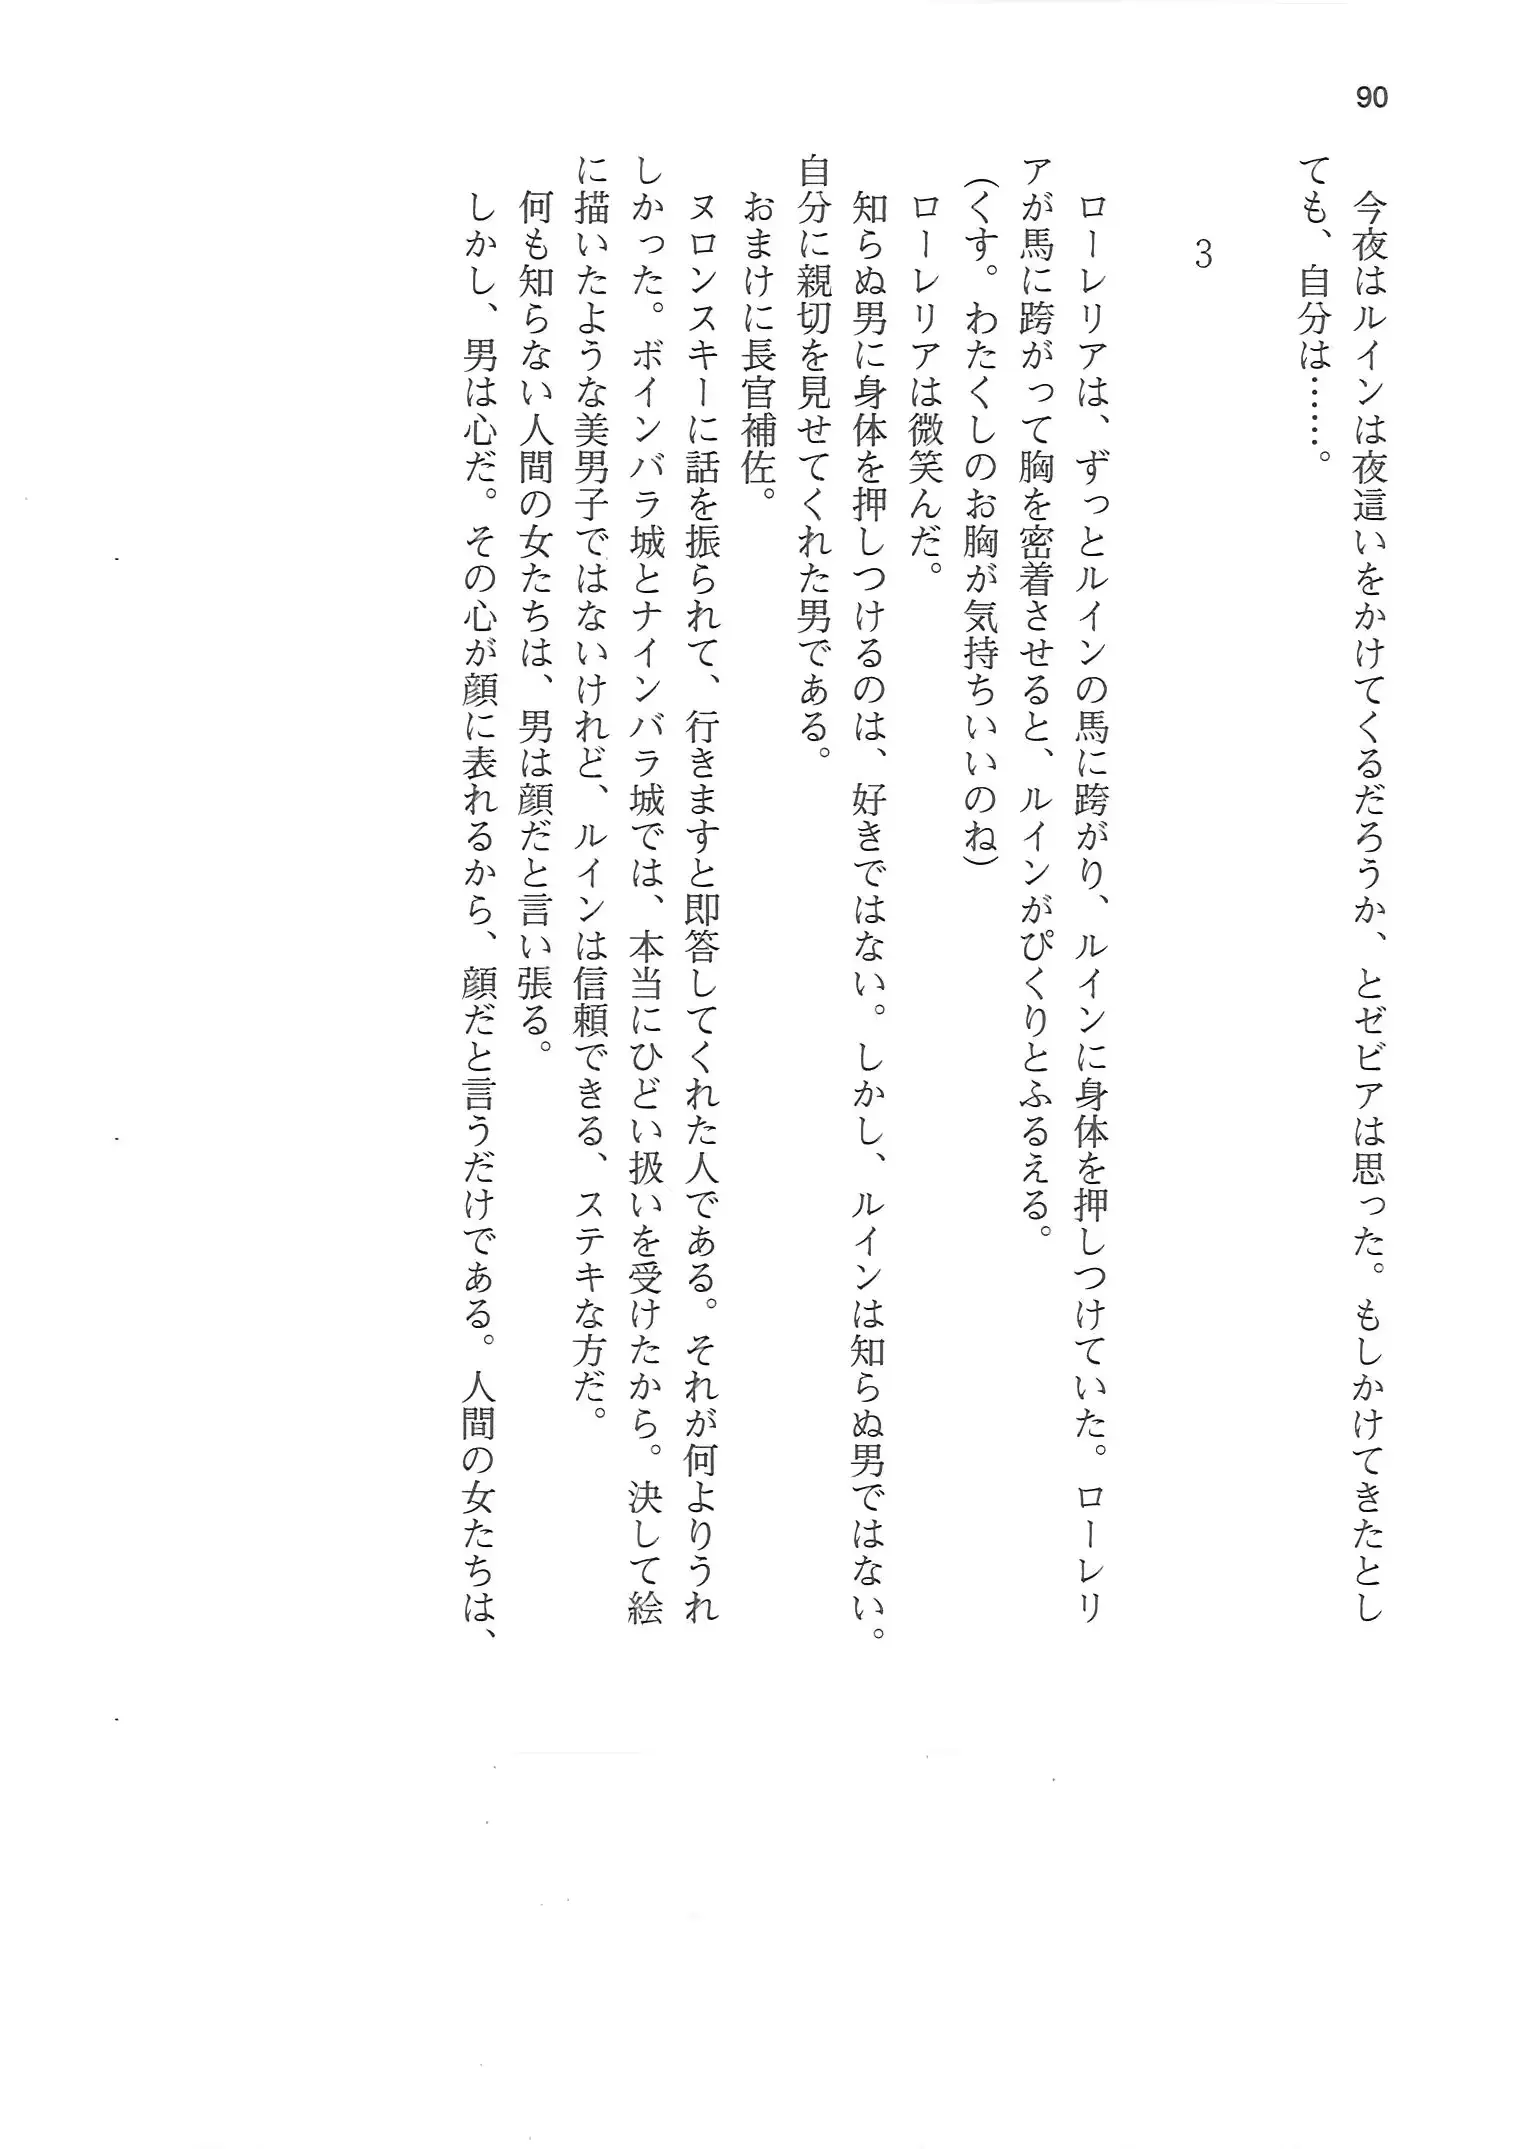 90
今夜はルインは夜這いをかけてくるだろうか、とゼビアは思った。もしかけてきたとし
ても、自分は……。
3
ローレリアは、ずっとルインの馬に跨がり、ルインに身体を押しつけていた。ローレリ
アが馬に跨がって胸を密着させると、ルインがぴくりとふるえる。
(くす。わたくしのお胸が気持ちいいのね)
ローレリアは微笑んだ。
知らぬ男に身体を押しつけるのは、好きではない。しかし、ルインは知らぬ男ではない。
自分に親切を見せてくれた男である。
おまけに長官補佐。
ヌロンスキーに話を振られて、行きますと即答してくれた人である。それが何よりうれ
しかった。ボインバラ城とナインバラ城では、本当にひどい扱いを受けたから。決して絵
に描いたような美男子ではないけれど、ルインは信頼できる、ステキな方だ。
何も知らない人間の女たちは、男は顔だと言い張る。
しかし、男は心だ。その心が顔に表れるから、顔だと言うだけである。人間の女たちは、